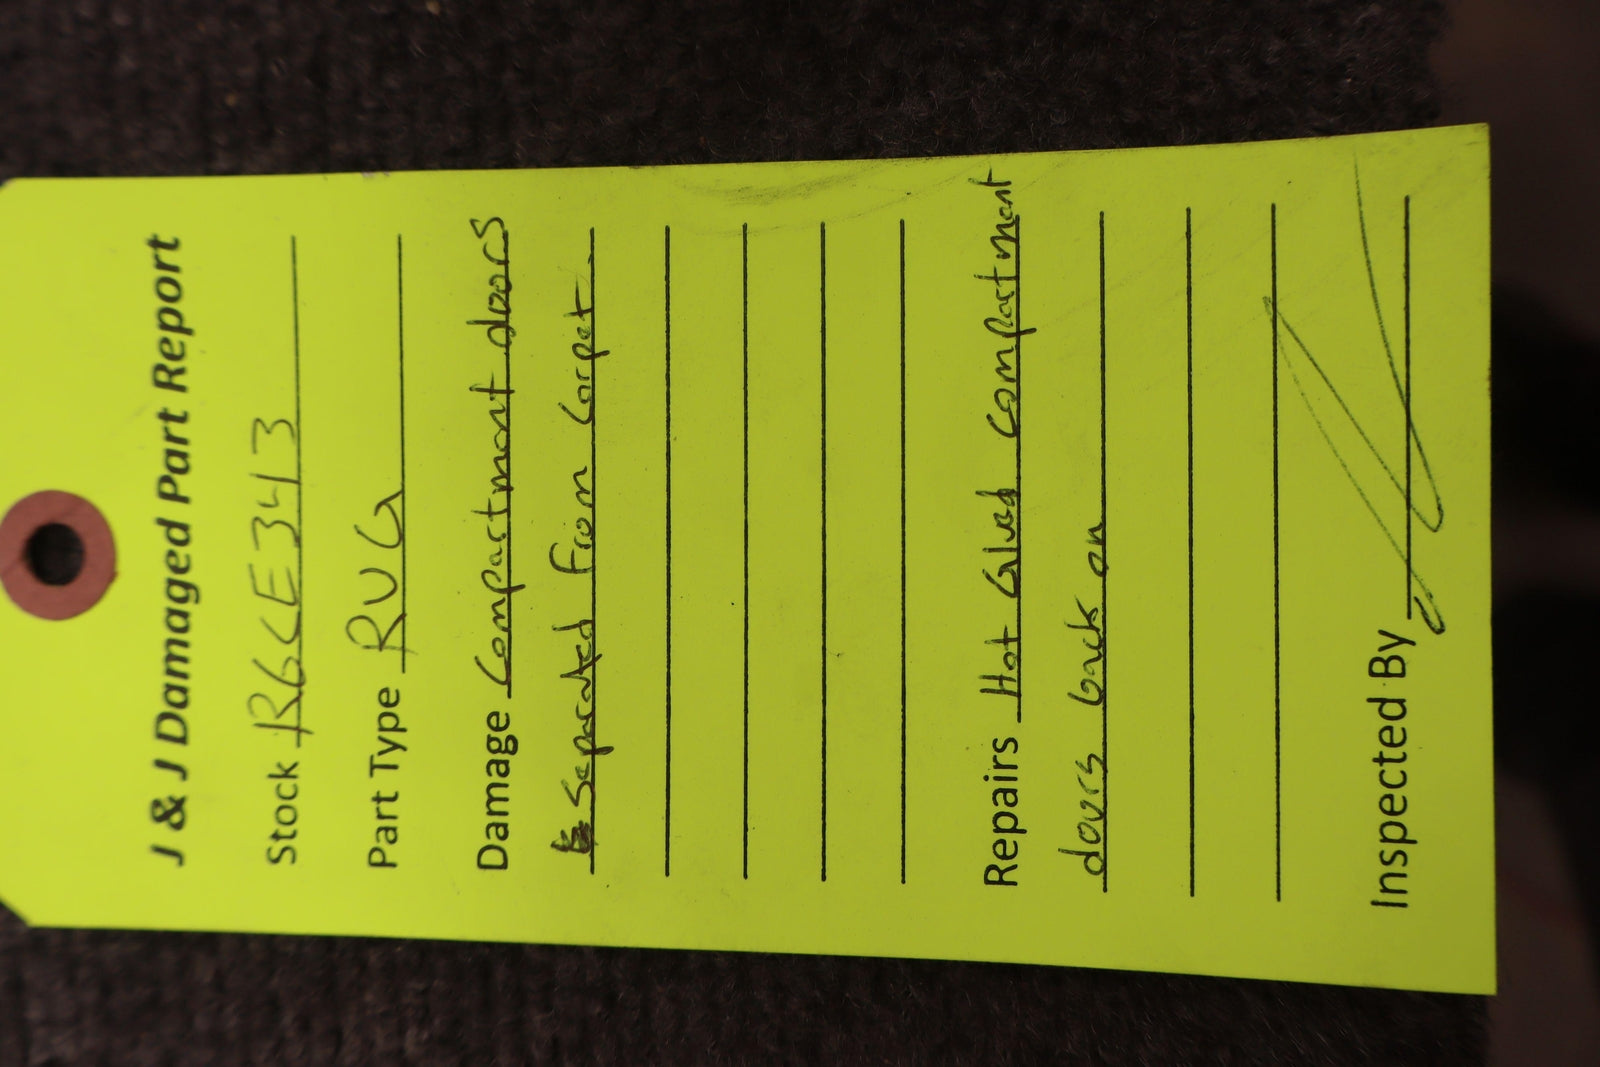 J & J Damaged Part Report
Stock RGCE343
Part Type RUG
Damage Compartment doors
Separated From Carpet
Repairs Hot Glued Compartment
doors back on
Inspected By